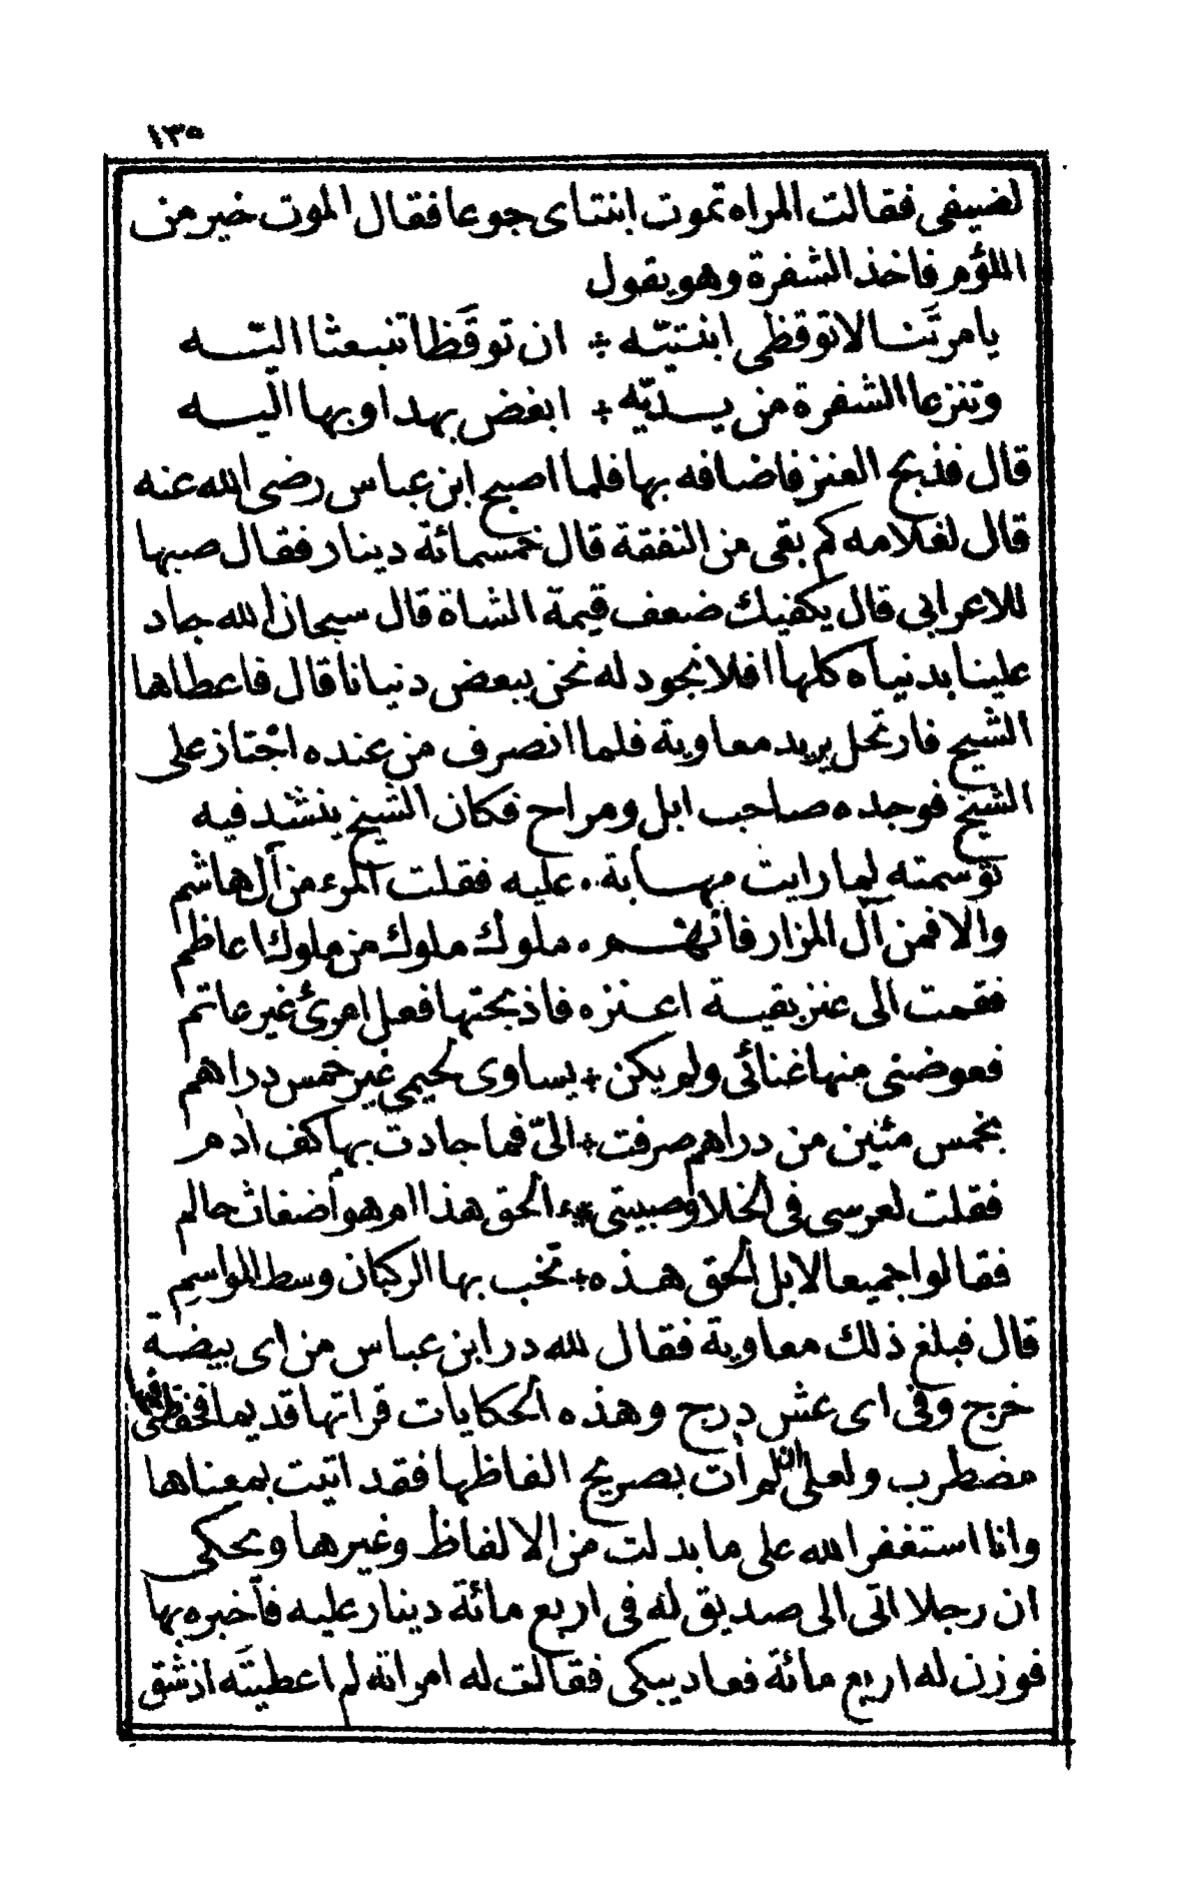 ١٣٥
لضيفى فقالت المراه تموت ابنتاى جوعا فقال الموت خير من
اللؤم فاخذ الشفرة وهو يقول
يا مرتنا لا توقظى ابنتيّه ۞ ان توقظا تنبعثا اليّه
وتنزعا الشفرة من يديّه ۞ ابغض بهدا وبها اليه
قال فذبح العنز فاضافه بها فلما اصبح ابن عباس رضى الله عنه
قال لغلامه كم بقى من النفقة قال خمسمائة دينار فقال صبها
للاعرابى قال يكفيك ضعف قيمة الشاة قال سبحان الله جاد
علينا بدنياه كلها افلا نجود له نحن ببعض دنيانا قال فاعطاها
الشيخ فارتحل يريد معاوية فلما انصرف من عنده اجتاز على
الشيخ فوجده صاحب ابل ومراح فكان الشيخ ينشد فيه
توسمته لما رايت مهابة ۰ عليه فقلت المرء من آل هاشم
والا فمن آل المزار فانهم ۰ ملوك ملوك من ملوك اعاظم
فقمت الى عنز بقية اعنزه فاذبحتها فعل امرئ غير عاتم
فعوضنى منها غنائى ولو يكن ۞ يساوى لحيمى غير خمس دراهم
بخمس مئين من دراهم صرفت ۞ الىّ فما جادت بها كف ادهر
فقلت لعرسى فى الخلا وصبيتى ۞ ء الحق هذا ام هو أضغاث حالم
فقالوا جميعا لا بل الحق هذه ۞ تخب بها الركبان وسط المواسم
قال فبلغ ذلك معاوية فقال لله در ابن عباس من اى بيضة
خرج وفى اى عش درج وهذه الحكايات قراتها قديما فحفظى فيها
مضطرب ولعلى ان لم أت بصريح الفاظها فقد اتيت بمعناها
وانا استغفر الله على ما بدلت من الالفاظ وغيرها ويحكى
ان رجلا اتى الى صديق له فى اربع مائة دينار عليه فأخبره بها
فوزن له اربع مائة فعاد يبكى فقالت له امراته لم اعطيته اذ شق